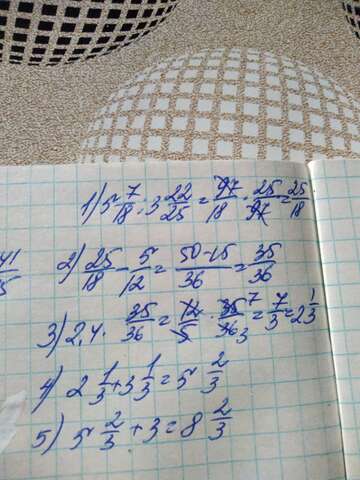 1) 5 7/18 : 3 22/25 = 97/18 · 25/97 = 25/18
41/5 2) 25/18 - 5/12 = (50-15)/36 = 35/36
3) 2,4 · 35/36 = 12/5 · 35/36 7 3 = 7/3 = 2 1/3
4) 2 1/3 + 3 1/3 = 5 2/3
5) 5 2/3 + 3 = 8 2/3